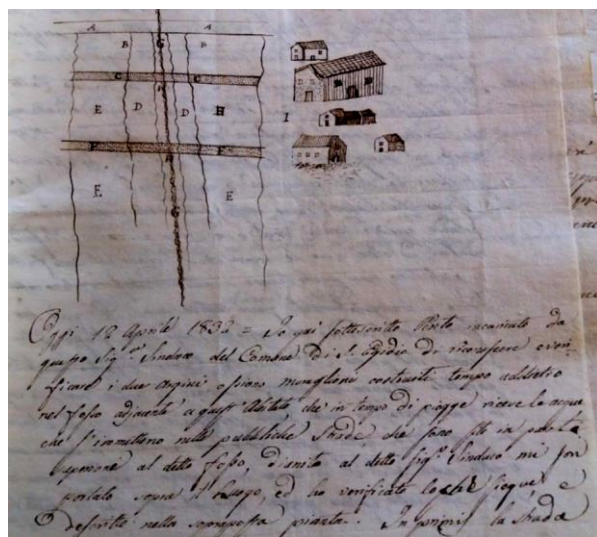 A A
B G B
C C
E D D H
I
F F
G
E E
Oggi 12 Aprile 1832 = Io qui sottoscritto Perito incaricato da
questo Sig.r Sindaco del Comune di S. Egidio di riconoscere e veri-
ficare i due argini ossiano muraglioni costruiti tempo addietro
nel fosso adjacente a quest'Abitato, che in tempo di piogge riceve le acque
che s'immettono nelle pubbliche strade che sono site in parte
superiore al detto fosso, al detto Sig.r Sindaco mi son
portato sopra il luogo, ed ho verificato locchè siegue e
descritto nella soprapposta pianta. In primis la strada